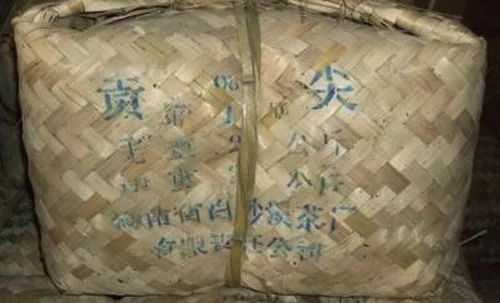 贡 尖
毛重 公斤
净重 公斤
湖南省白沙溪茶厂
有限责任公司